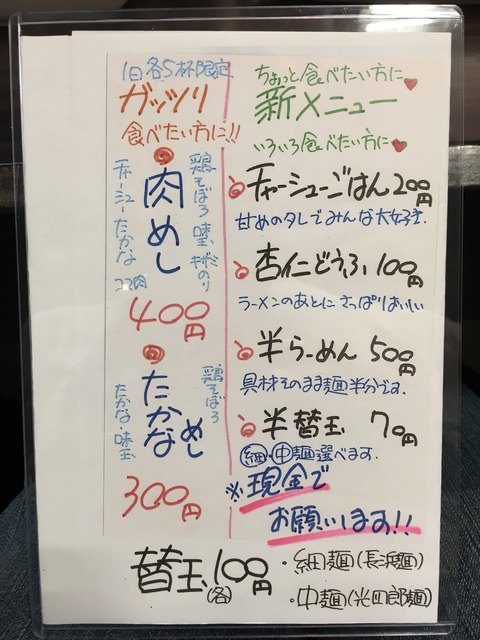 1日各5杯限定
ガッツリ
食べたい方に!!
肉めし
鶏そぼろ 味玉 キザミのり
チャーシュー たかな
コロ肉
400円
たかなめし
鶏そぼろ
たかな・味玉
300円
ちょっと食べたい方に
新メニュー
いろいろ食べたい方に
チャーシューごはん 200円
甘めのタレでみんな大好き.
杏仁どうふ 100円
ラーメンのあとに さっぱりおいしい
半らーめん 500円
具材そのまま麺半分です.
半替玉 70円
細・中麺選べます.
※現金で
お願いします!!
替玉 100円
(各)
・細麺(長浜麺)
・中麺(光四郎麺)